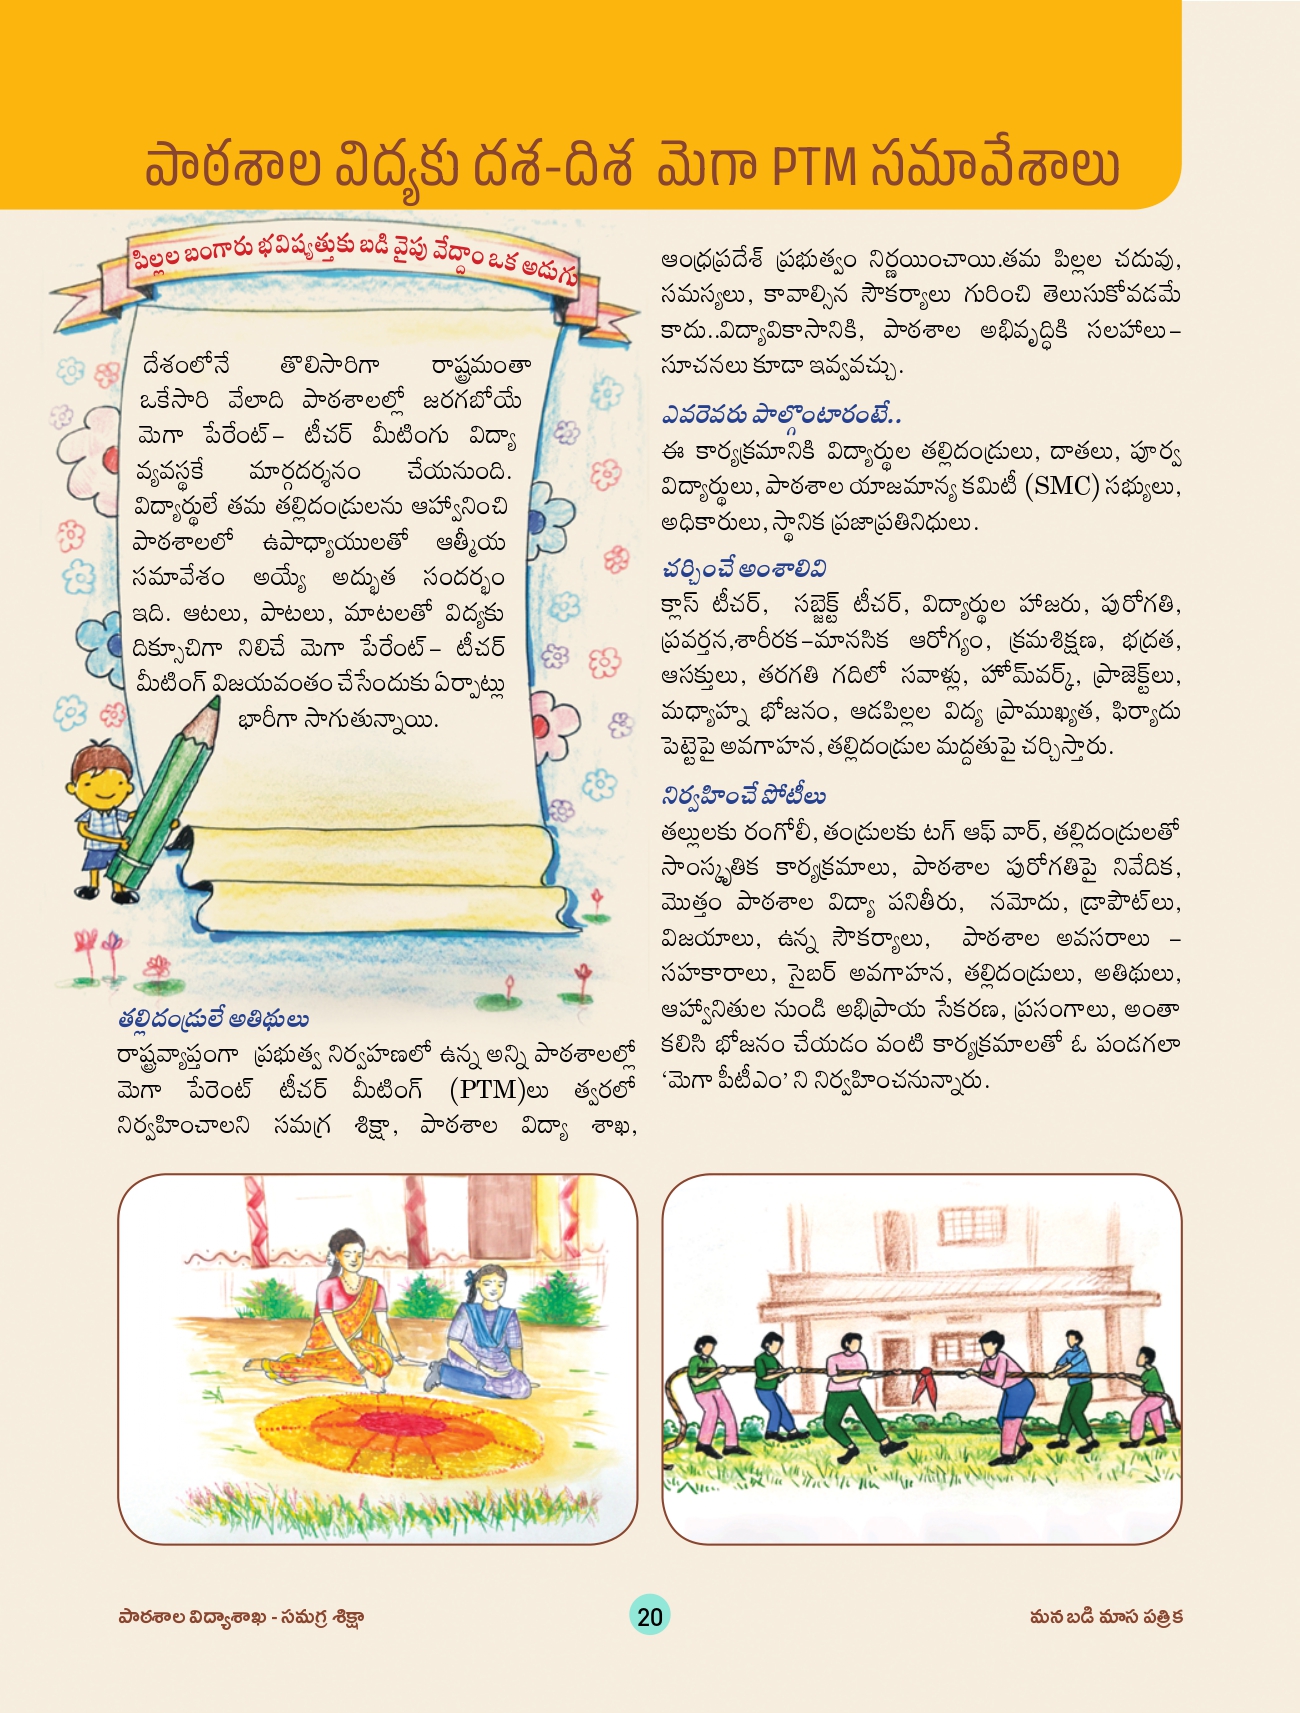 పాఠశాల విద్యకు దశ-దిశ మెగా PTM సమావేశాలు
పిల్లల బంగారు భవిష్యత్తుకు బడి వైపు వేద్దాం ఒక అడుగు
దేశంలోనే తొలిసారిగా రాష్ట్రమంతా
ఒకేసారి వేలాది పాఠశాలల్లో జరగబోయే
మెగా పేరేంట్- టీచర్ మీటింగు విద్యా
వ్యవస్థకే మార్గదర్శనం చేయనుంది.
విద్యార్థులే తమ తల్లిదండ్రులను ఆహ్వానించి
పాఠశాలలో ఉపాధ్యాయులతో ఆత్మీయ
సమావేశం అయ్యే అద్భుత సందర్భం
ఇది. ఆటలు, పాటలు, మాటలతో విద్యకు
దిక్సూచిగా నిలిచే మెగా పేరేంట్- టీచర్
మీటింగ్ విజయవంతం చేసేందుకు ఏర్పాట్లు
భారీగా సాగుతున్నాయి.
తల్లిదండ్రులే అతిథులు
రాష్ట్రవ్యాప్తంగా ప్రభుత్వ నిర్వహణలో ఉన్న అన్ని పాఠశాలల్లో
మెగా పేరెంట్ టీచర్ మీటింగ్ (PTM)లు త్వరలో
నిర్వహించాలని సమగ్ర శిక్షా, పాఠశాల విద్యా శాఖ,
ఆంధ్రప్రదేశ్ ప్రభుత్వం నిర్ణయించాయి.తమ పిల్లల చదువు,
సమస్యలు, కావాల్సిన సౌకర్యాలు గురించి తెలుసుకోవడమే
కాదు..విద్యావికాసానికి, పాఠశాల అభివృద్ధికి సలహాలు-
సూచనలు కూడా ఇవ్వవచ్చు.
ఎవరెవరు పాల్గొంటారంటే..
ఈ కార్యక్రమానికి విద్యార్థుల తల్లిదండ్రులు, దాతలు, పూర్వ
విద్యార్థులు, పాఠశాల యాజమాన్య కమిటీ (SMC) సభ్యులు,
అధికారులు, స్థానిక ప్రజాప్రతినిధులు.
చర్చించే అంశాలివి
క్లాస్ టీచర్, సబ్జెక్ట్ టీచర్, విద్యార్థుల హాజరు, పురోగతి,
ప్రవర్తన,శారీరక-మానసిక ఆరోగ్యం, క్రమశిక్షణ, భద్రత,
ఆసక్తులు, తరగతి గదిలో సవాళ్లు, హోమ్‌వర్క్, ప్రాజెక్ట్‌లు,
మధ్యాహ్న భోజనం, ఆడపిల్లల విద్య ప్రాముఖ్యత, ఫిర్యాదు
పెట్టెపై అవగాహన, తల్లిదండ్రుల మద్దతుపై చర్చిస్తారు.
నిర్వహించే పోటీలు
తల్లులకు రంగోలీ, తండ్రులకు టగ్ ఆఫ్ వార్, తల్లిదండ్రులతో
సాంస్కృతిక కార్యక్రమాలు, పాఠశాల పురోగతిపై నివేదిక,
మొత్తం పాఠశాల విద్యా పనితీరు, నమోదు, డ్రాపౌట్‌లు,
విజయాలు, ఉన్న సౌకర్యాలు, పాఠశాల అవసరాలు -
సహకారాలు, సైబర్ అవగాహన, తల్లిదండ్రులు, అతిథులు,
ఆహ్వానితుల నుండి అభిప్రాయ సేకరణ, ప్రసంగాలు, అంతా
కలిసి భోజనం చేయడం వంటి కార్యక్రమాలతో ఓ పండగలా
‘మెగా పీటీఎం’ ని నిర్వహించనున్నారు.
పాఠశాల విద్యాశాఖ - సమగ్ర శిక్షా
20
మన బడి మాస పత్రిక